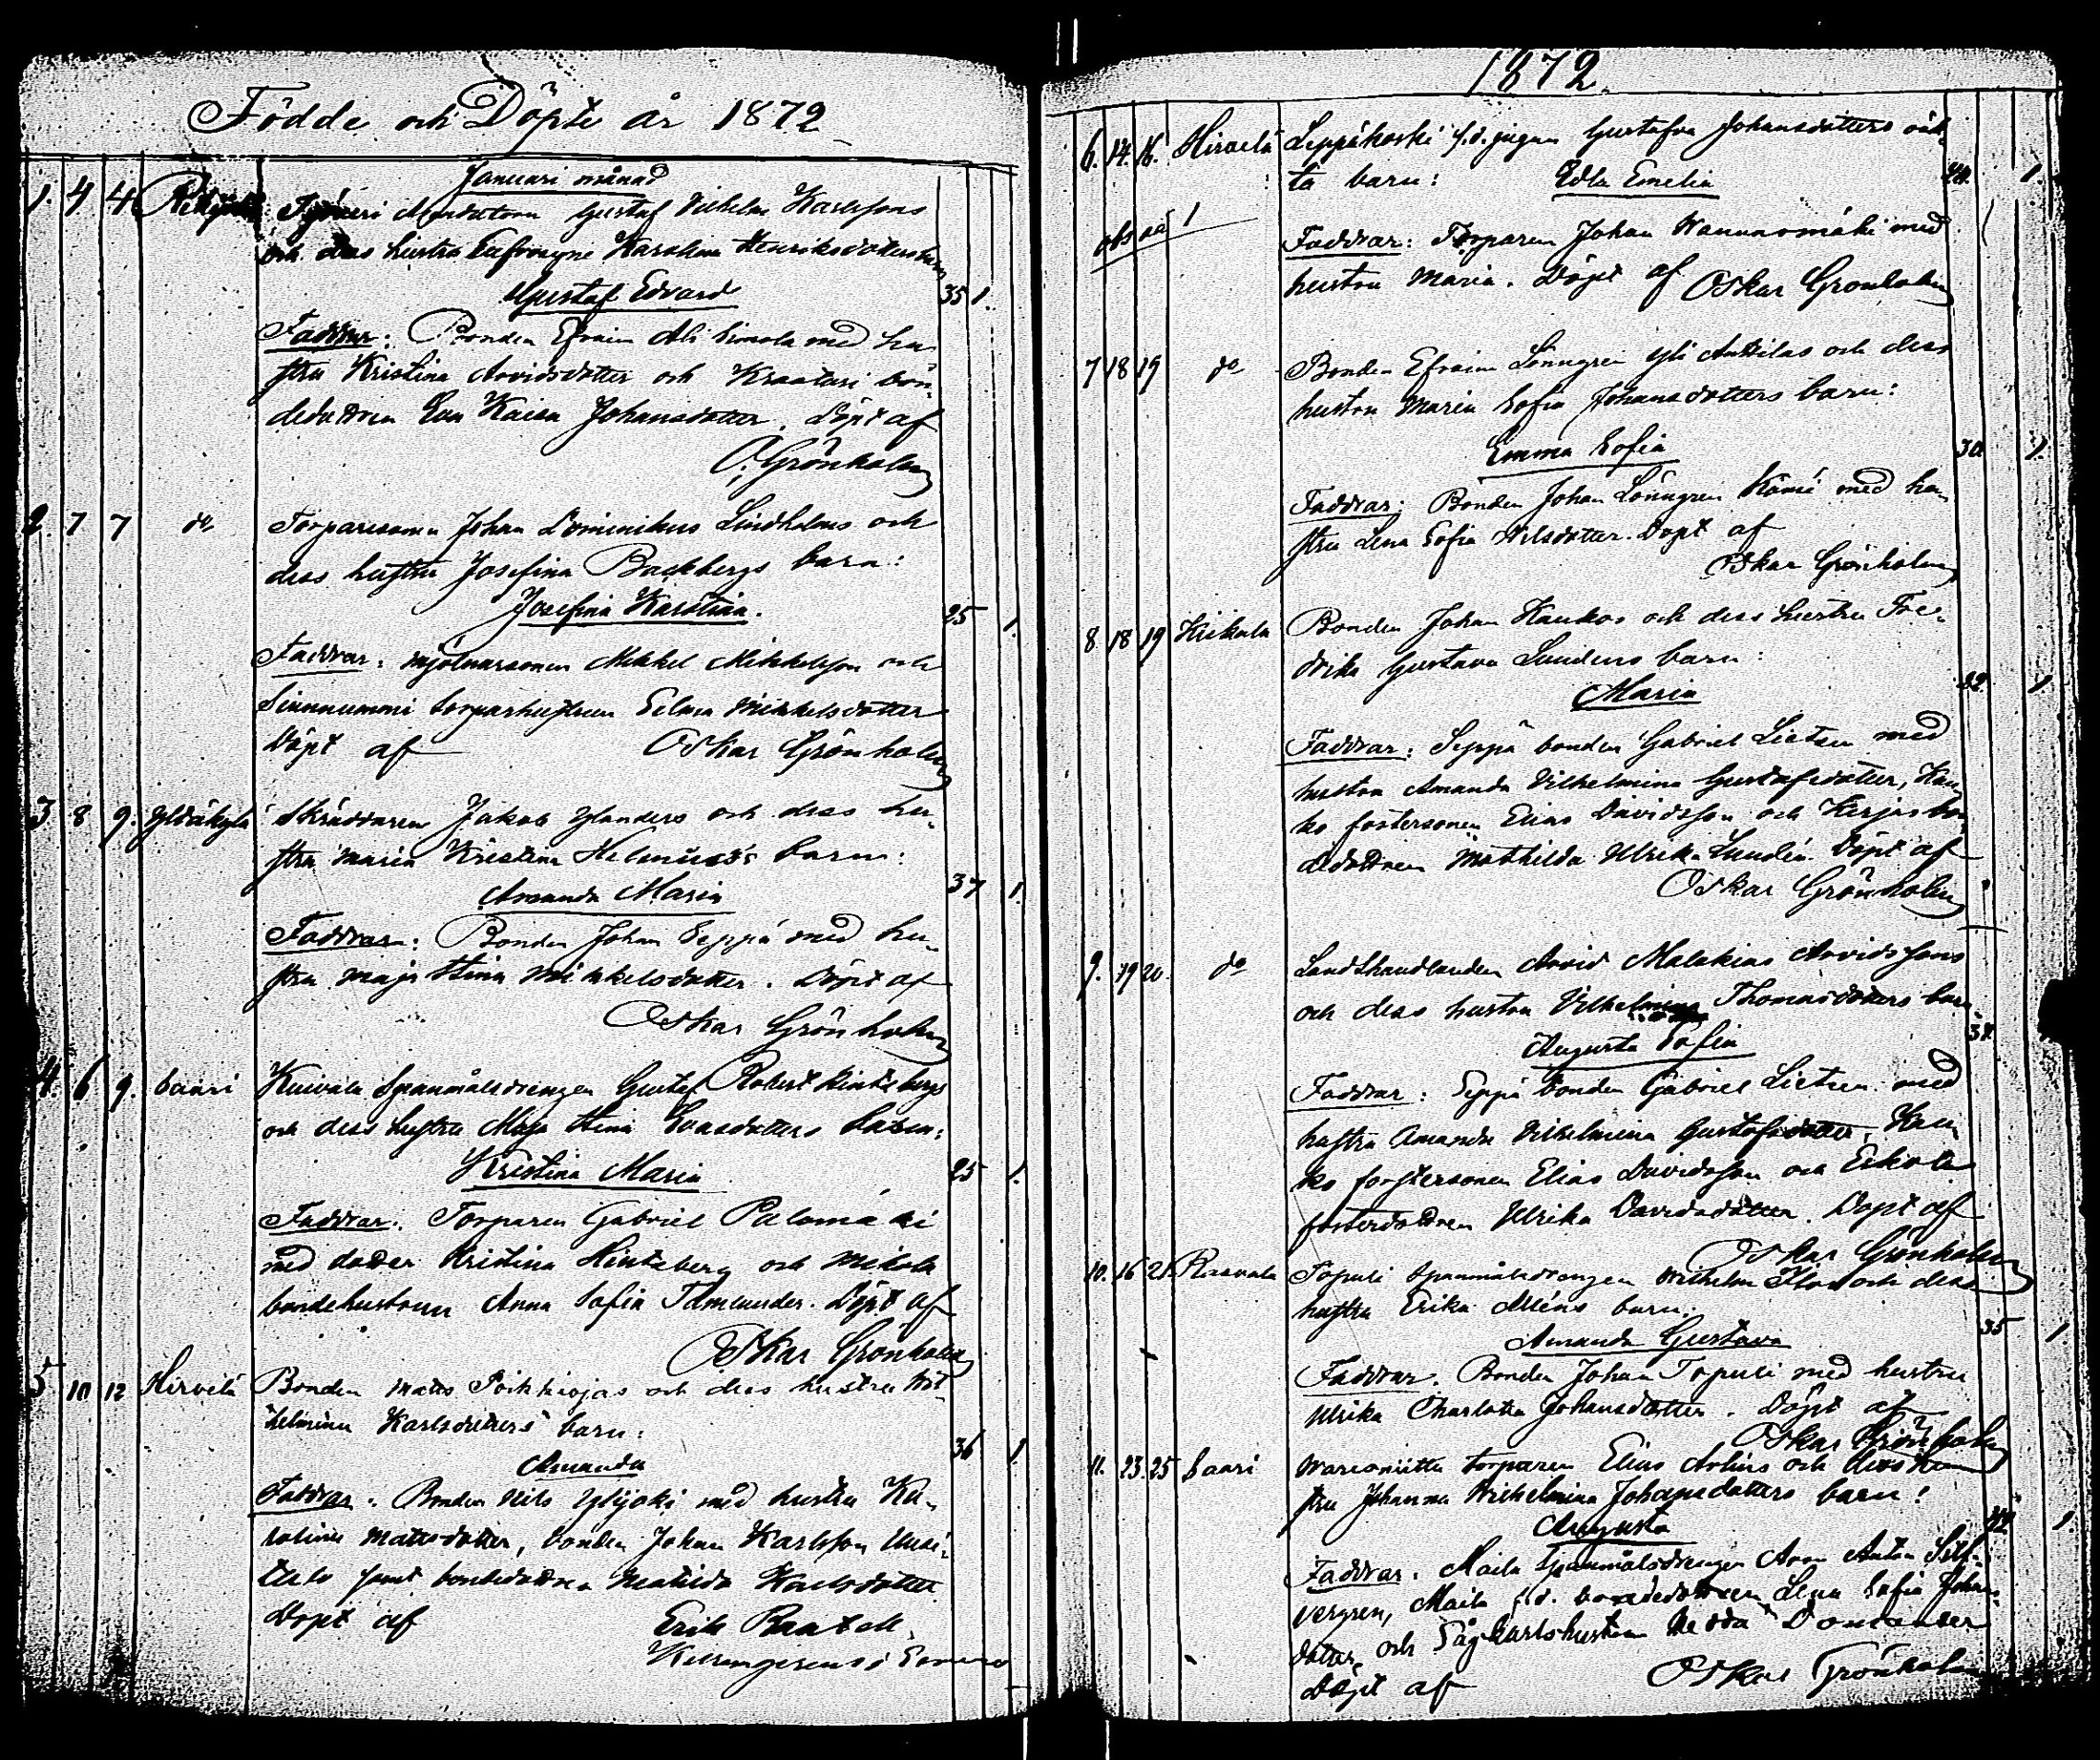 Födde och Döpte år 1872
Januari månad
1. 4 4 Gustaf Vilhelm Karlssons
och dess hustru Eufrosyne Karolina Henriksdotters barn
Gustaf Edvard 35 1.
Faddrar: Bonden Efraim Ali Simola med hu-
stru Kristina Arvidsdotter och Kraatari bon-
dedottren Eva Kaisa Johansdotter. Döpt af
O. Grönholm
2. 7 7 do Torparesonen Johan Dominikus Lindholms och
dess hustru Josefina Backbergs barn:
Josefina Karolina. 25 1.
Faddrar: mjölnarsonen Mikkel Mikkelsson och
torparhustrun Selma Mikkelsdotter
Döpt af Oskar Grönholm
3 8 9. Skräddaren Jakob Ylanders och dess hu-
stru Maria Kristina barn:
Amanda Maria 37 1.
Faddrar: Bonden Johan Seppä med hu-
stru Maja Stina Mikkelsdotter. Döpt af
Oskar Grönholm
4. 6 9. Saari Kuivala Spanmålsdrengen Gustaf Robert Hintzbergs
och dess hustru Maja Stina Evasdotters barn:
Kristina Maria 25 1.
Faddrar: Torparen Gabriel Palomäki
med dotter Kristina Hintzberg och Mikola
bondehustrun Anna Sofia Tamlander. Döpt af
Oskar Grönholm
5 10 12 Hirvelä Bonden Mats och dess hustru Vil-
helmina Karlsdotters barn:
Amanda 36 1
Faddrar: Bonden Nils Ylijoki med hustru Ka-
rolina Mattsdotter, bonden Johan Karlsson Uusi-
talo samt bondedottren Matilda Karlsdotter
Döpt af Erik
i Somero
1872.
6. 14. 16. Hirvelä Leppäkoski f.d. pigan Gustafva Johansdotters oäk-
ta barn: Edla Emelia 1.
obs oä! Faddrar: Torparen Johan Kannusmäki med
hustru Maria. Döpt af Oskar Grönholm
7 18 19 do Bonden Efraim Lönngren Yli Anttilas och dess
hustru Maria Sofia Johansdotters barn:
Emma Sofia 30. 1.
Faddrar: Bonden Johan Lönngren med hu-
stru Lena Sofia Nilsdotter. Döpt af
Oskar Grönholm
8 18 19 Kiikala Bonden Johan Haukos och dess hustru Fre-
drika Gustava Lundens barn:
Maria 1.
Faddrar: Seppä bonden Gabriel Lietzen med
hustru Amanda Vilhelmina Gustafsdotter, Hau-
ko fostersonen Elias Davidsson och bon-
dedottren Mathilda Ulrika Lundén. Döpt af
Oskar Grönholm
9. 19 20. do Landthandlanden Arvid Malakias Arvidssons
och dess hustru Vilhelmina Thomasdotters barn
Augusta Sofia
Faddrar: Seppä bonden Gabriel Lietzen med
hustru Amanda Vilhelmina Gustafsdotter, Hau-
ko fostersonen Elias Davidsson och Erkola
fosterdottren Ulrika Davidsdotter. Döpt af
Oskar Grönholm
10. 16 21. Rasvala Topuli Spanmålsdrengen Wilhelm och dess
hustru Erika Alléns barn:
Amanda Gustava 35 1
Faddrar. Bonden Johan Topuli med hustru
Ulrika Charlotta Johansdotter. Döpt af
Oskar Grönholm
11. 23. 25 Saari torparen Elias och dess hu-
stru Johanna Wilhelmina Johansdotters barn:
Augusta 1.
Faddrar. Maila Spanmålsdrengen Aron Anton Silf-
vergren, Maila f.d. bondedottren Lena Sofia Johans-
dotter, och Hedda Domander
Döpt af Oskar Grönholm